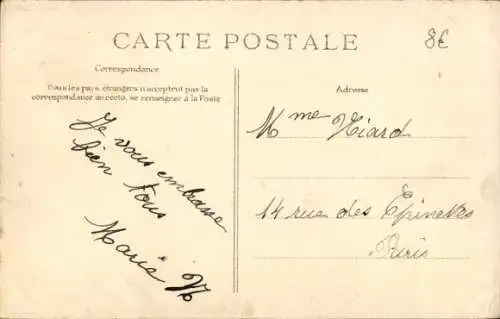 CARTE POSTALE
8€
Correspondance
Tous les pays étrangers n'acceptent pas la
correspondance au recto, se renseigner à la Poste
Je vous embrasse
bien tous
Marie
Adresse
Mme
14 rue des Epinettes
Paris